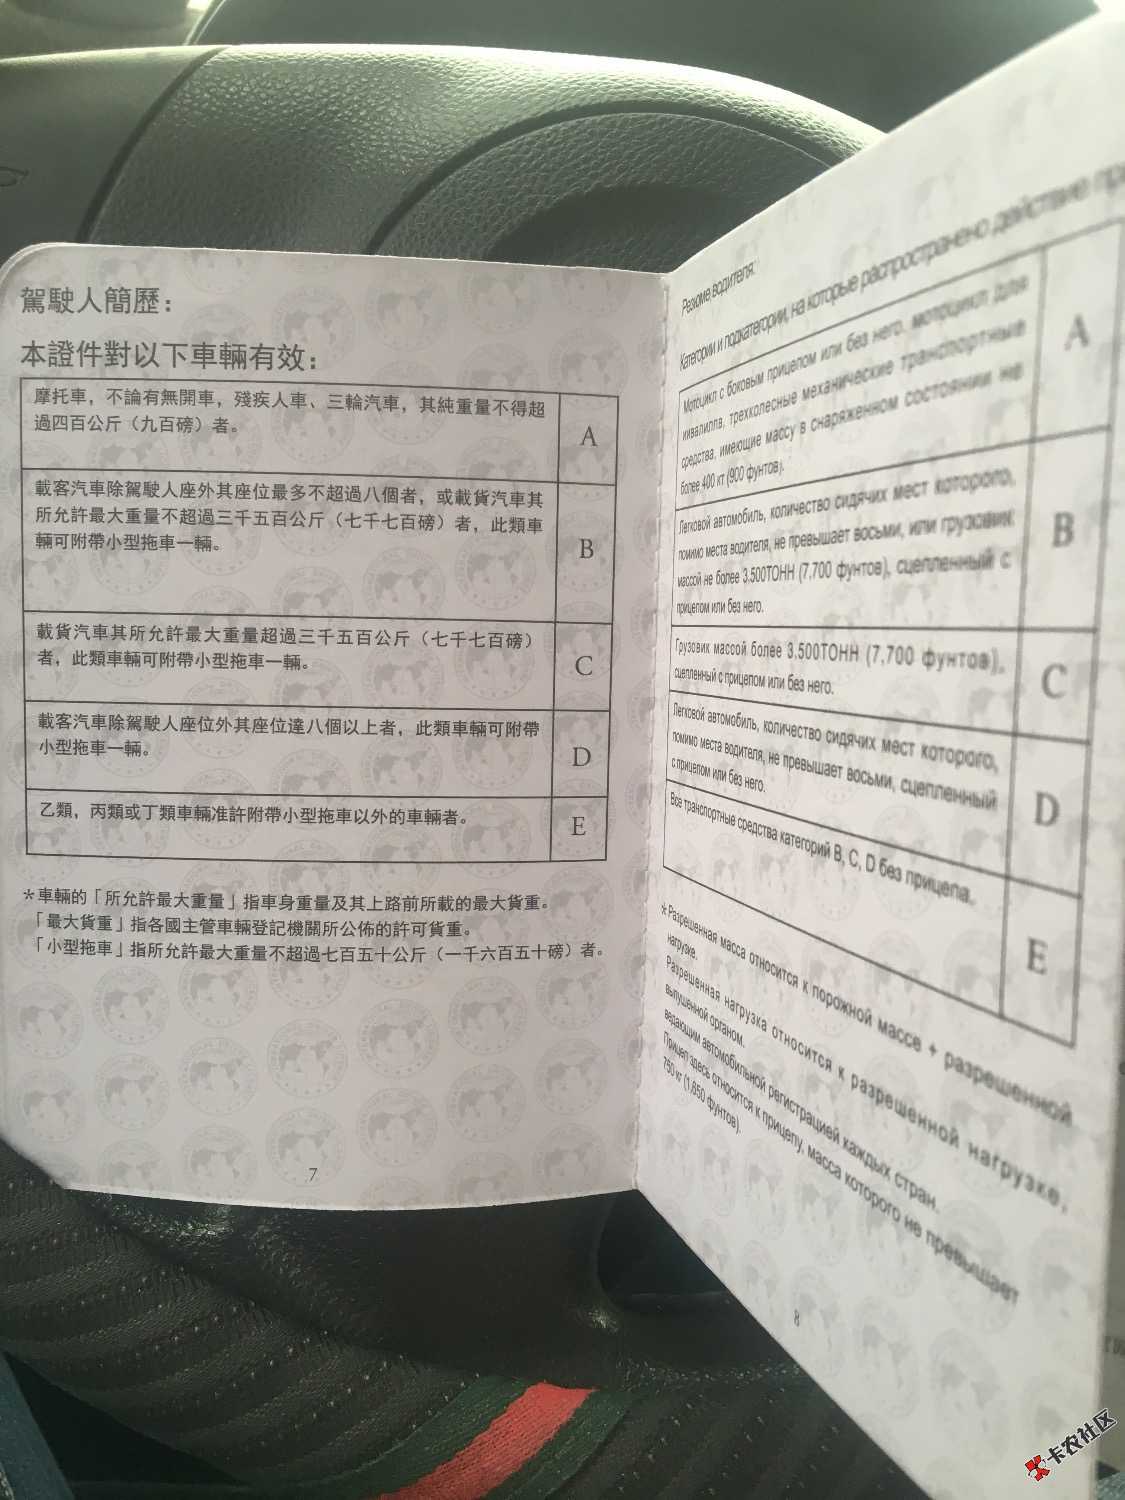 駕駛人簡歷：
本證件對以下車輛有效：
摩托車，不論有無開車，殘疾人車、三輪汽車，其純重量不得超
過四百公斤（九百磅）者。
A
載客汽車除駕駛人座外其座位最多不超過八個者，或載貨汽車其
所允許最大重量不超過三千五百公斤（七千七百磅）者，此類車
輛可附帶小型拖車一輛。
B
載貨汽車其所允許最大重量超過三千五百公斤（七千七百磅）
者，此類車輛可附帶小型拖車一輛。
C
載客汽車除駕駛人座位外其座位達八個以上者，此類車輛可附帶
小型拖車一輛。
D
乙類，丙類或丁類車輛准許附帶小型拖車以外的車輛者。
E
＊車輛的「所允許最大重量」指車身重量及其上路前所載的最大貨重。
「最大貨重」指各國主管車輛登記機關所公佈的許可貨重。
「小型拖車」指所允許最大重量不超過七百五十公斤（一千六百五十磅）者。
7
Резюме водителя:
Категории и подкатегории, на которые распространено действие
Мотоцикл с боковым прицепом или без него, мотоцикл для
инвалидов, трехколесные механические транспортные
средства, имеющие массу в снаряженном состоянии не
более 400 кг (900 фунтов).
A
Легковой автомобиль, количество сидячих мест которого,
помимо места водителя, не превышает восьми, или грузовик
массой не более 3.500ТОНН (7,700 фунтов), сцепленный с
прицепом или без него.
B
Грузовик массой более 3.500ТОНН (7,700 фунтов),
сцепленный с прицепом или без него.
C
Легковой автомобиль, количество сидячих мест которого,
помимо места водителя, не превышает восьми, сцепленный
с прицепом или без него.
D
Все транспортные средства категорий B, C, D без прицепа.
E
*Разрешенная масса относится к порожной массе + разрешенной
нагрузке.
Разрешенная нагрузка относится к разрешенной нагрузке,
выпушенной органом,
ведающим автомобильной регистрацией каждых стран.
Прицеп здесь относится к прицепу, масса которого не превышает
750 кг (1,650 фунтов).
8
卡农社区